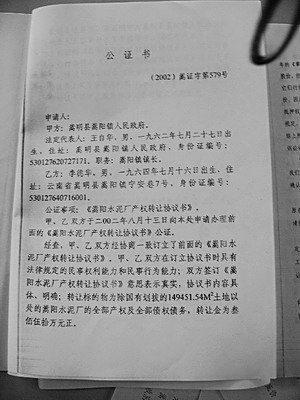 公 证 书
（2002）嵩证字第579号
申请人：
甲方：嵩明县嵩阳镇人民政府。
法定代表人：王自华，男，一九六二年七月二十七日出
生，住址：嵩明县嵩阳镇人民政府，身份证编号：
530127620727171．职务：嵩阳镇镇长。
乙方：李德华，男，一九六四年七月十六日出生，住
址：云南省嵩明县嵩阳镇宁安巷7号，身份证编号：
530127640716001．
公证事项：《嵩阳水泥厂产权转让协议书》
甲、乙双方于二00二年八月十三日向本处申请办理前
面的《嵩阳水泥厂产权转让协议书》公证。
经查，甲、乙双方经协商一致订立了前面的《嵩阳水
泥厂产权转让协议书》．甲、乙双方在订立协议书时具有
法律规定的民事权利能力和民事行为能力；双方签订《嵩
阳水泥厂产权转让协议书》意思表示真实，协议书内容具
体、明确；转让标的物为除国有划拨的149451.54M²土地以
外的嵩阳水泥厂的全部产权及全部债权债务，转让金为叁
佰伍拾万元正。